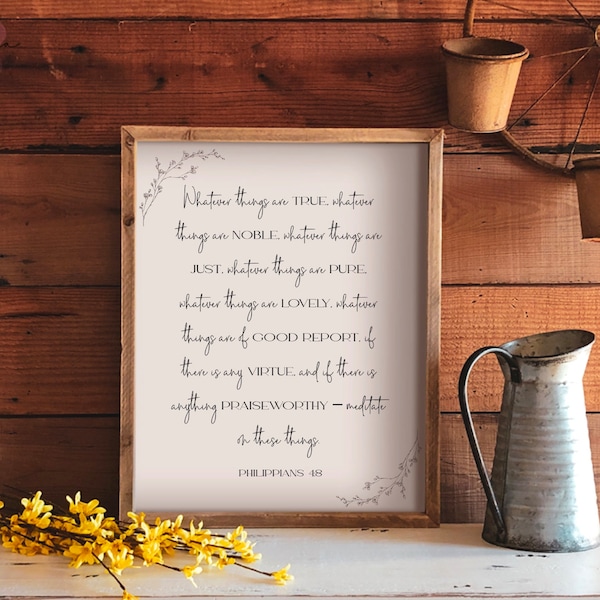 Whatever things are TRUE, whatever
things are NOBLE, whatever things are
JUST, whatever things are PURE,
whatever things are LOVELY, whatever
things are of GOOD REPORT, if
there is any VIRTUE, and if there is
anything PRAISEWORTHY — meditate
on these things.
PHILIPPIANS 4:8